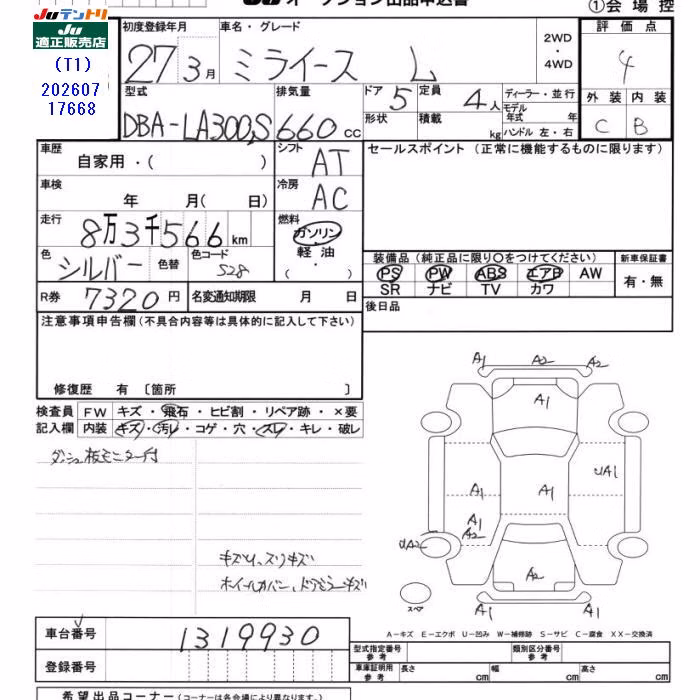 JUテントリ
JU
適正販売店
(T1)
202607
17668
JU オークション出品申込書
①会場控
初度登録年月
27 3月
車名・グレード
ミライース L
2WD
・
4WD
評価点
4
外装 内装
C B
型式
DBA-LA300S
排気量
660 cc
ドア 5
定員 4人
形状
積載 kg
ディーラー・並行
モデル
年式 年
ハンドル 左・右
車歴
自家用・( )
シフト
AT
セールスポイント (正常に機能するものに限ります)
車検
年 月( 日)
冷房
AC
走行
8万3千566 km
燃料
ガソリン
・
軽油
・
( )
色
シルバー
色替
色コード
S28
R券 7320円
名変通知期限 月 日
装備品 (純正品に限り○をつけてください)
PS PW ABS エアB AW
SR ナビ TV カワ
新車保証書
有・無
後日品
注意事項申告欄 (不具合内容等は具体的に記入して下さい)
修復歴 有 〔箇所 〕
検査員
記入欄
FW キズ・飛石・ヒビ割・リペア跡・×要
内装 キズ・汚レ・コゲ・穴・スレ・キレ・破レ
ダッシュ板モニター付
キズ凹、スリキズ
ホイールカバー、ドアミラーキズ
A1 A2 A2
A1
UA1
A1 A1
A1
A2
UA2
A2
A1 A1
スペア
A-キズ E-エクボ U-凹み W-補修跡 S-サビ C-腐食 XX-交換済
車台番号 1319930
登録番号
型式指定番号
参考
類別区分番号
参考
車庫証明用
参考
長さ cm 幅 cm 高さ cm
希望出品コーナー (コーナーは各会場により異なります。)